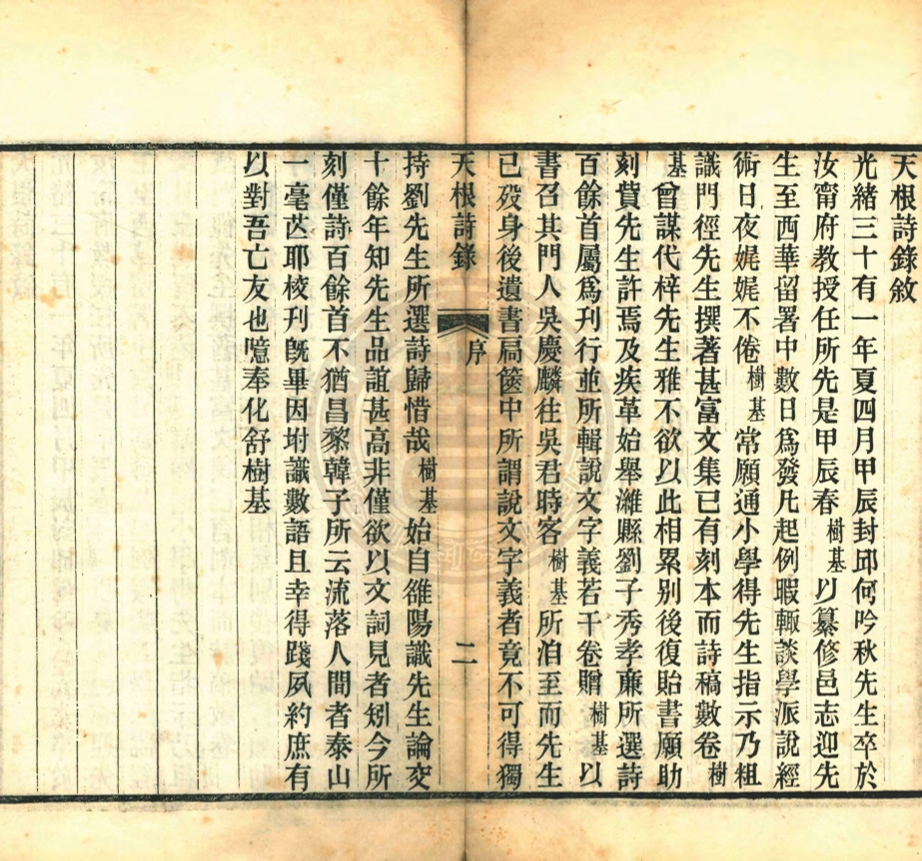 天根詩錄敘
光緒三十有一年夏四月甲辰封邱何吟秋先生卒於
汝甯府教授任所先是甲辰春樹基以纂修邑志迎先
生至西華留署中數日爲發凡起例暇輒談學派說經
術日夜娓娓不倦樹基常願通小學得先生指示乃粗
識門徑先生撰著甚富文集已有刻本而詩稿數卷樹
基曾謀代梓先生雅不欲以此相累别後復貽書願助
刻貲先生許焉及疾革始舉濰縣劉子秀孝廉所選詩
百餘首屬爲刊行並所輯說文字義若干卷贈樹基以
書召其門人吳慶麟往吳君時客樹基所洎至而先生
已歿身後遺書扃篋中所謂說文字義者竟不可得獨
天根詩錄 序 二
持劉先生所選詩歸惜哉樹基始自雒陽識先生論交
十餘年知先生品誼甚高非僅欲以文詞見者矧今所
刻僅詩百餘首不猶昌黎韓子所云流落人間者泰山
一毫芒耶校刊旣畢因坿識數語且幸得踐夙約庶有
以對吾亡友也噫奉化舒樹基